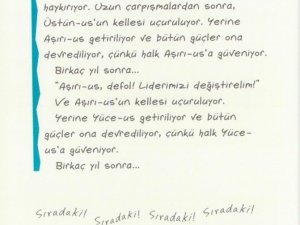 haykırıyor. Uzun çarpışmalardan sonra,
Üstün-us'un kellesi uçuruluyor. Yerine
Aşırı-us getiriliyor ve bütün güçler ona
devrediliyor, çünkü halk Aşırı-us'a güveniyor.
Birkaç yıl sonra...
"Aşırı-us, defol! Liderimizi değiştirelim!"
Ve Aşırı-us'un kellesi uçuruluyor.
Yerine Yüce-us getiriliyor ve bütün
güçler ona devrediliyor, çünkü halk Yüce-
us'a güveniyor.
Birkaç yıl sonra...
Sıradaki! Sıradaki! Sıradaki! Sıradaki!